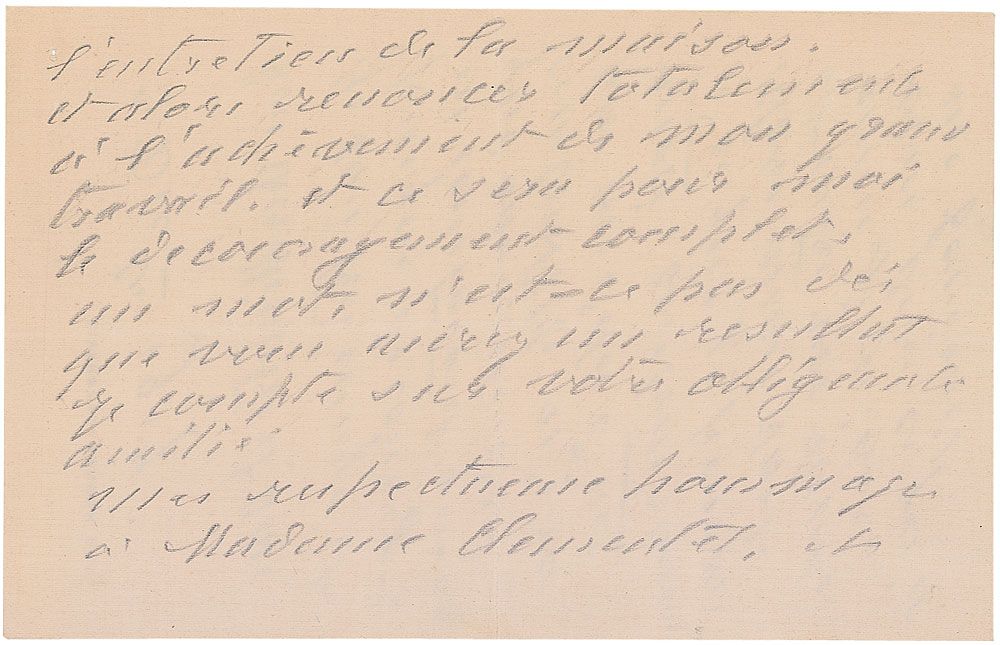 l'entretien de la maison.
et alors renoncer totalement
à l'achèvement de mon grand
travail. et ce sera pour moi
le decouragement complet.
un mot, n'est-ce pas dès
que vous aurez un resultat
je compte sur votre obligeante
amitié
mes respectueux hommages
à Madame Clementel. et